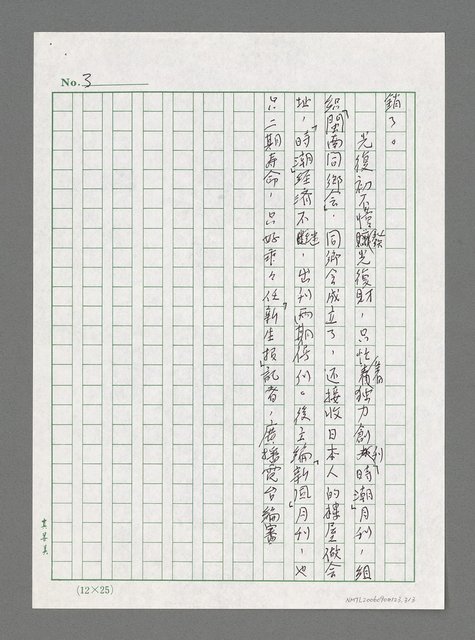 No. 3
銷了。
光復初不懂發光復財，只忙着獨力創刊「時潮」月刊，組
織「閩南同鄉会」．同鄉会成立了，还接收日本人的樓屋做会
址，「時潮」經濟不繼，出刊兩期停刊。後主編「新風」月刊，也
只二期寿命，只好乖々任「新生报」記者，廣播電台編審
(12×25)
NMTL20060900123.3/3